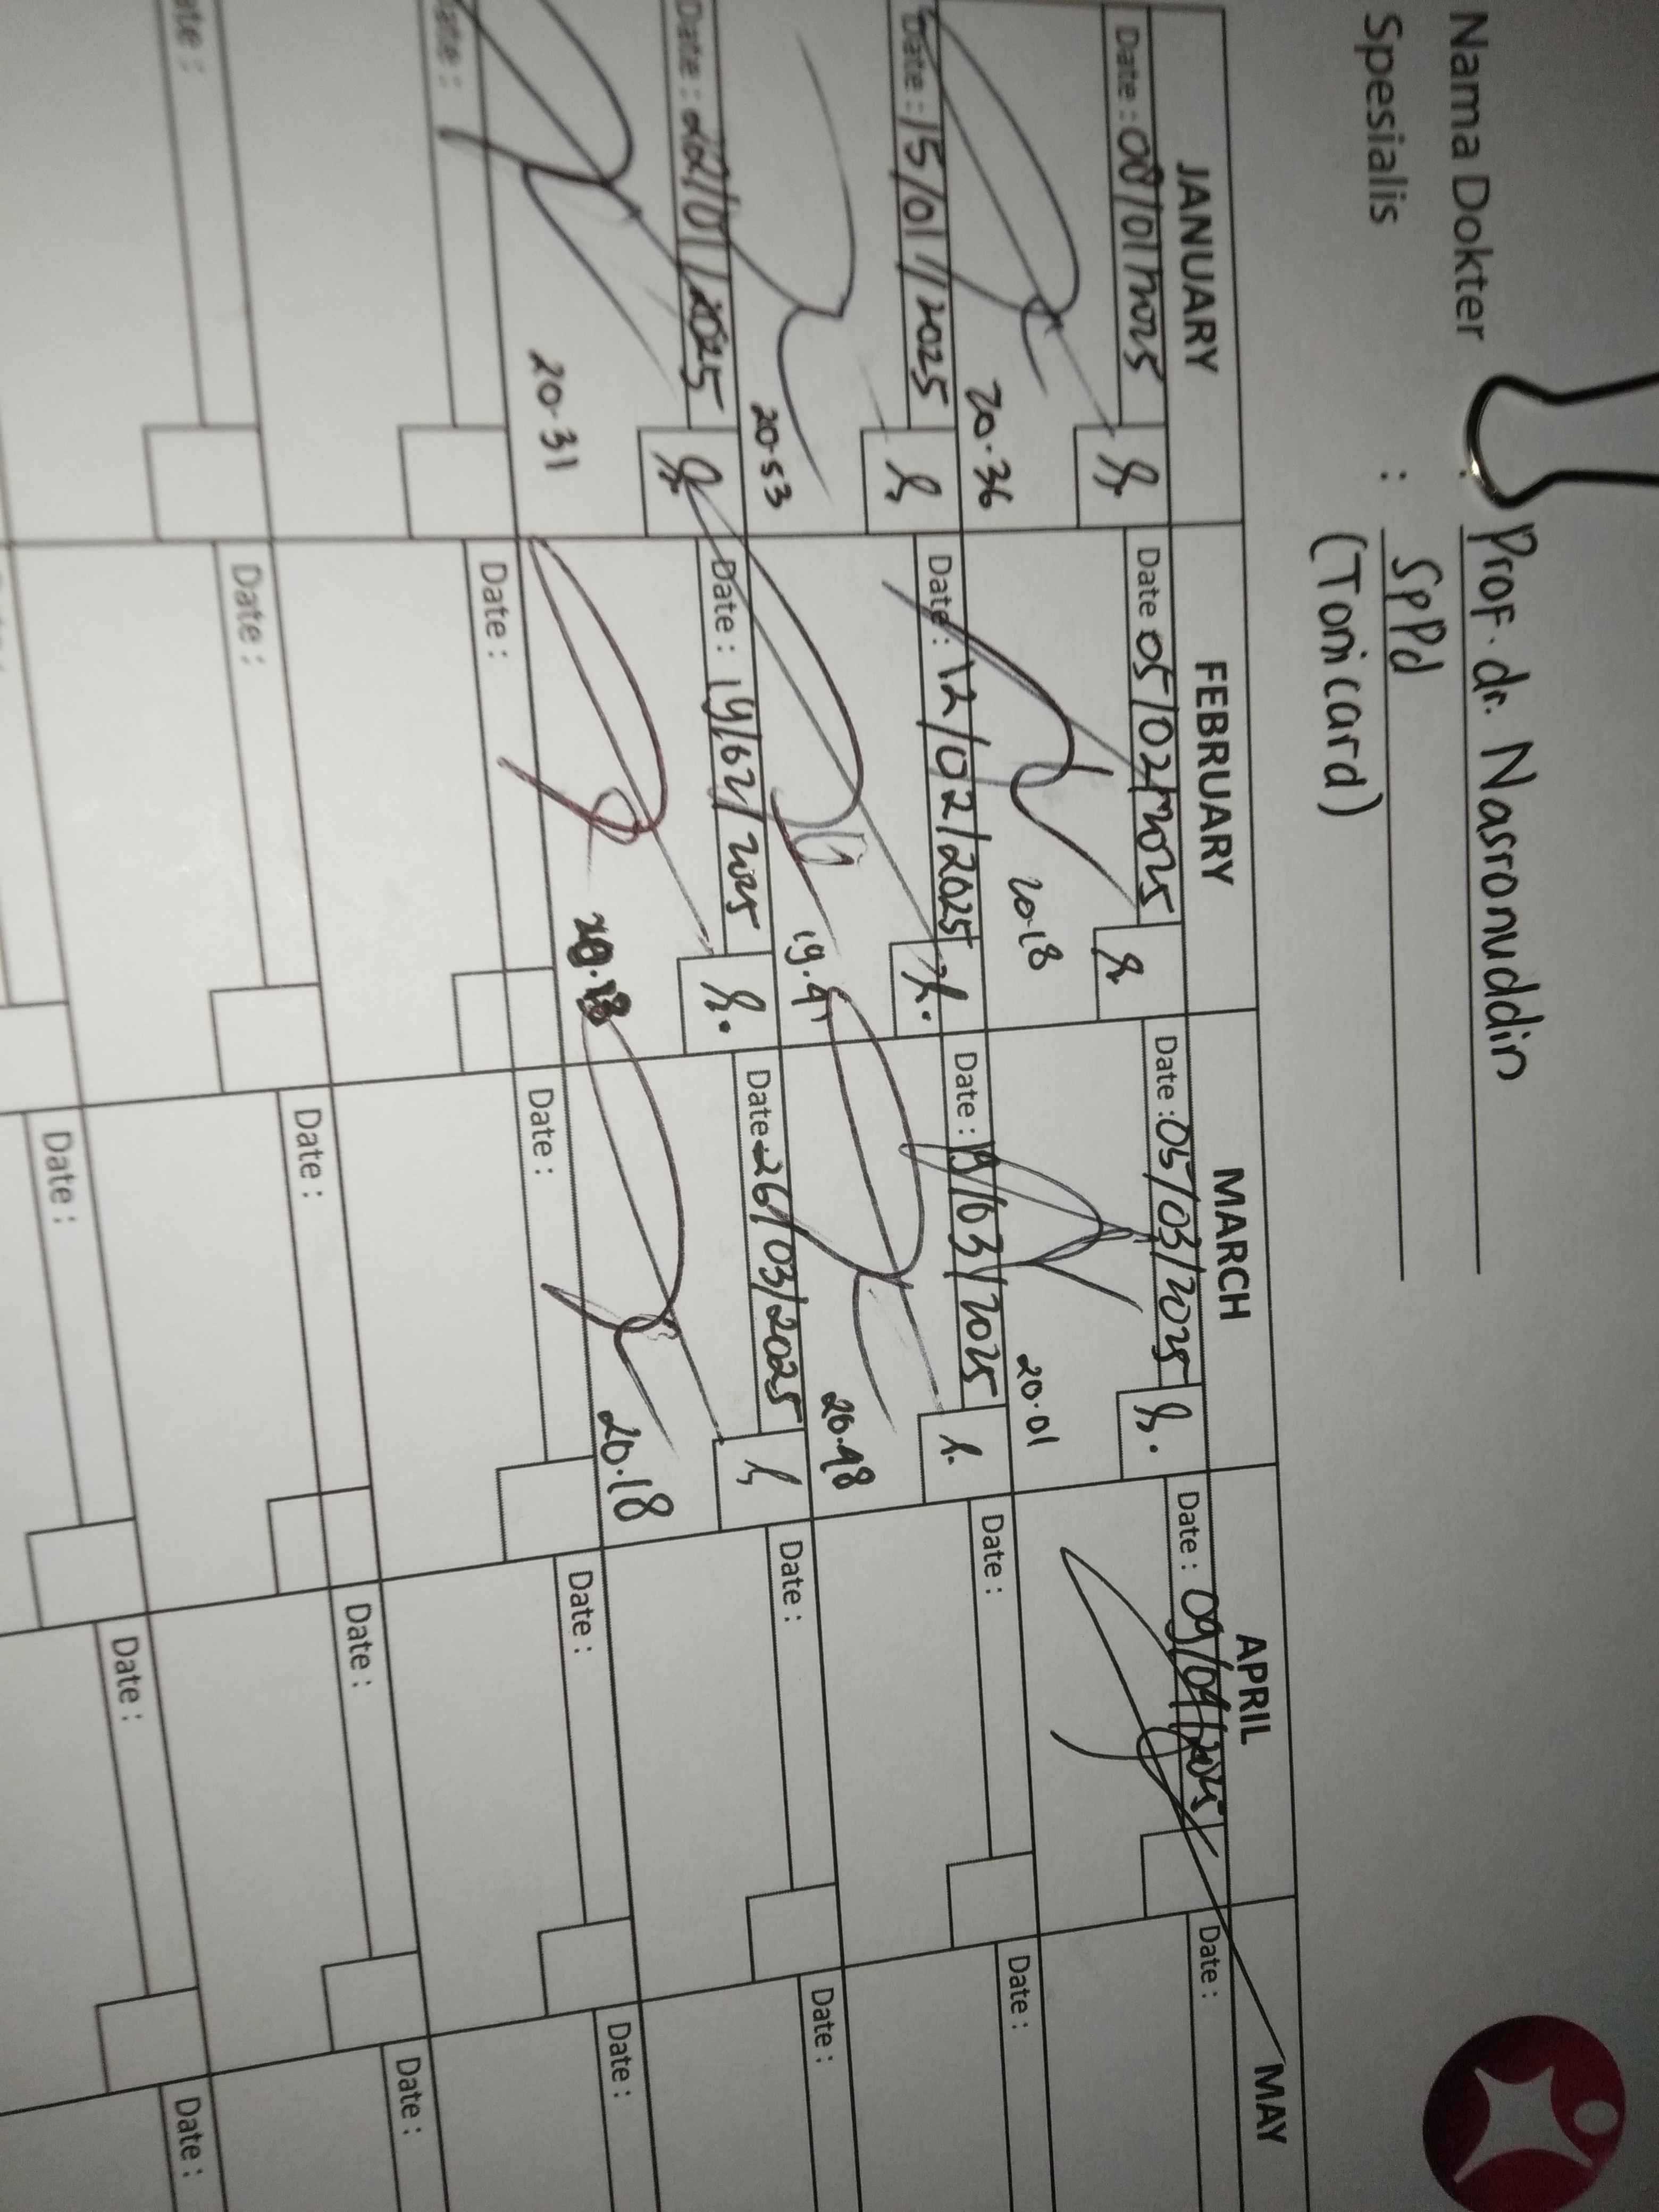 Nama Dokter : Prof. dr. Nasronuddin
Spesialis : SpPd
(Tonicard)
JANUARY FEBRUARY MARCH APRIL MAY
Date : 08/01/2025 Date : 05/02/2025 Date : 05/03/2025 Date : 09/04/2025 Date :
20.36 20.18 20.01
Date : 15/01/2025 Date : 12/02/2025 Date : 19/03/2025 Date : Date :
20.53 19.41 20.48
Date : 22/01/2025 Date : 19/02/2025 Date : 26/03/2025 Date : Date :
20.31 20.18
Date : Date : Date : Date : Date :
Date : Date : Date : Date : Date :
Date : Date : Date :